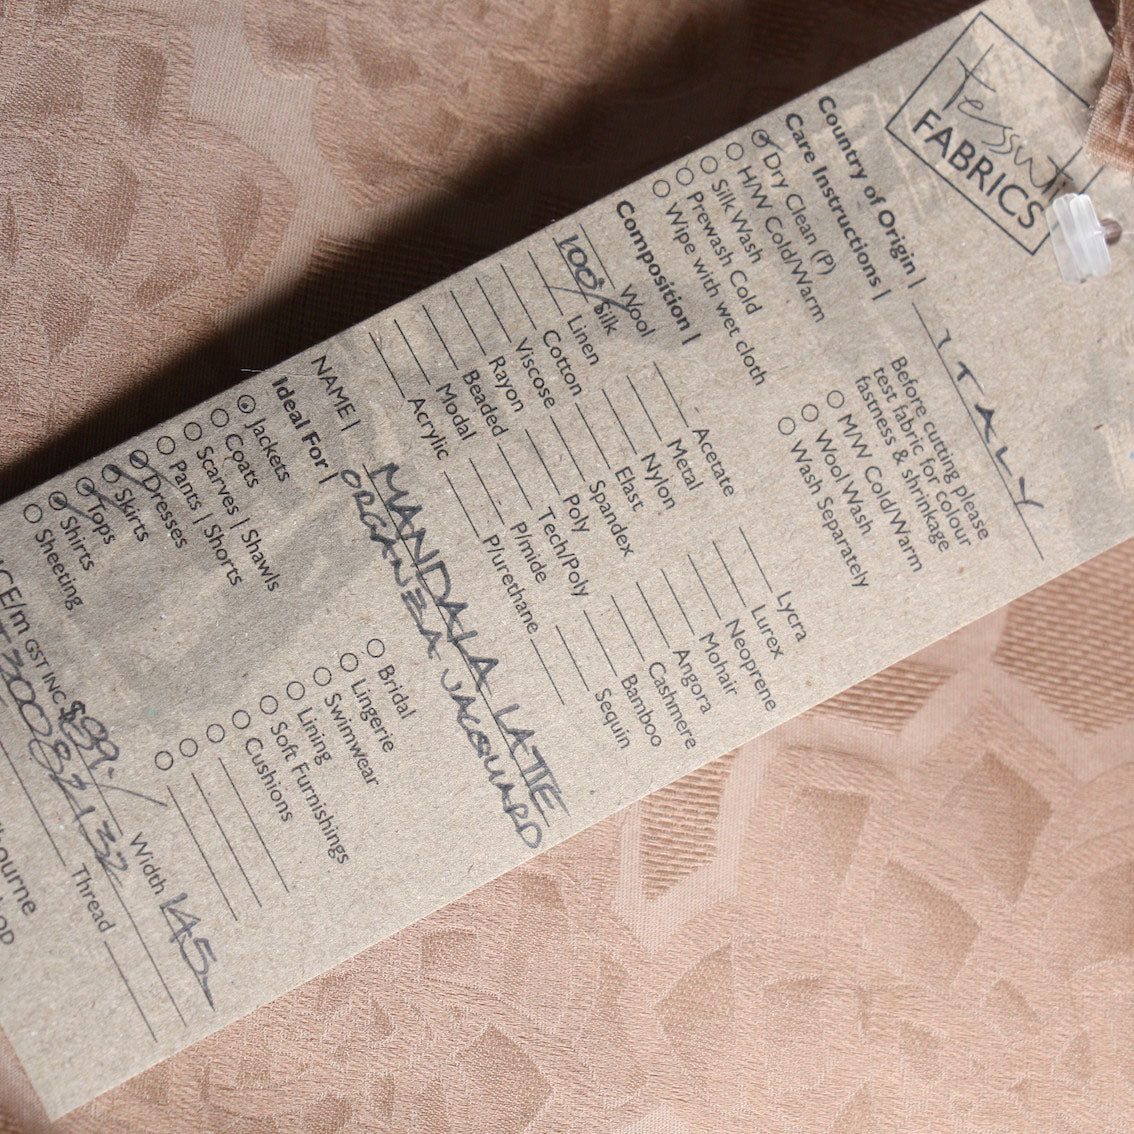 Tessuti
FABRICS
Country of Origin | ITALY
Care Instructions |
Dry Clean (P)
H/W Cold/Warm
Silk Wash
Prewash Cold
Wipe with wet cloth
Before cutting please
test fabric for colour
fastness & shrinkage
M/W Cold/Warm
Wool Wash
Wash Separately
Composition |
Wool
100% Silk
Linen
Cotton
Viscose
Rayon
Beaded
Modal
Acrylic
Acetate
Metal
Nylon
Elast
Spandex
Poly
Tech/Poly
P/mide
P/urethane
Lycra
Lurex
Neoprene
Mohair
Angora
Cashmere
Bamboo
Sequin
NAME | MANDALA LATTE
ORGANZA JACQUARD
Ideal For |
Jackets
Coats
Scarves | Shawls
Pants | Shorts
Dresses
Skirts
Tops
Shirts
Sheeting
Bridal
Lingerie
Swimwear
Lining
Soft Furnishings
Cushions
ICE/m GST INC $99.- Width 145
Thread
ourne